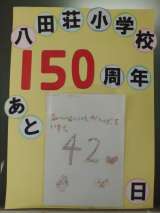 八田荘小学校
150周年
あと
42
日